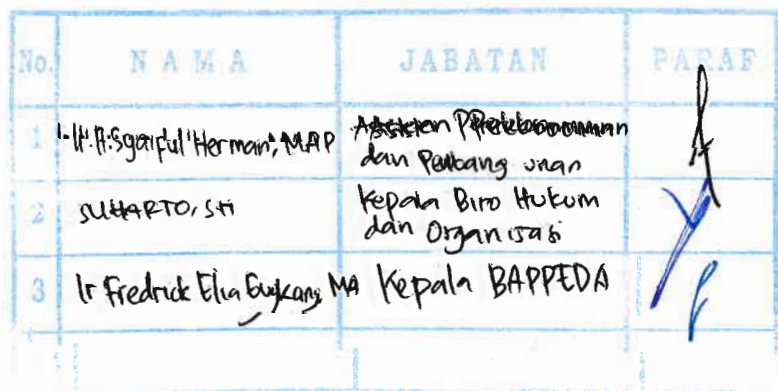 No. NAMA JABATAN PARAF
1 Ir. H. Syaiful Herman, MAP Asisten Perekonomian
dan Pembangunan
2 SUHARTO, SH Kepala Biro Hukum
dan Organisasi
3 Ir Fredrick Elia MA Kepala BAPPEDA